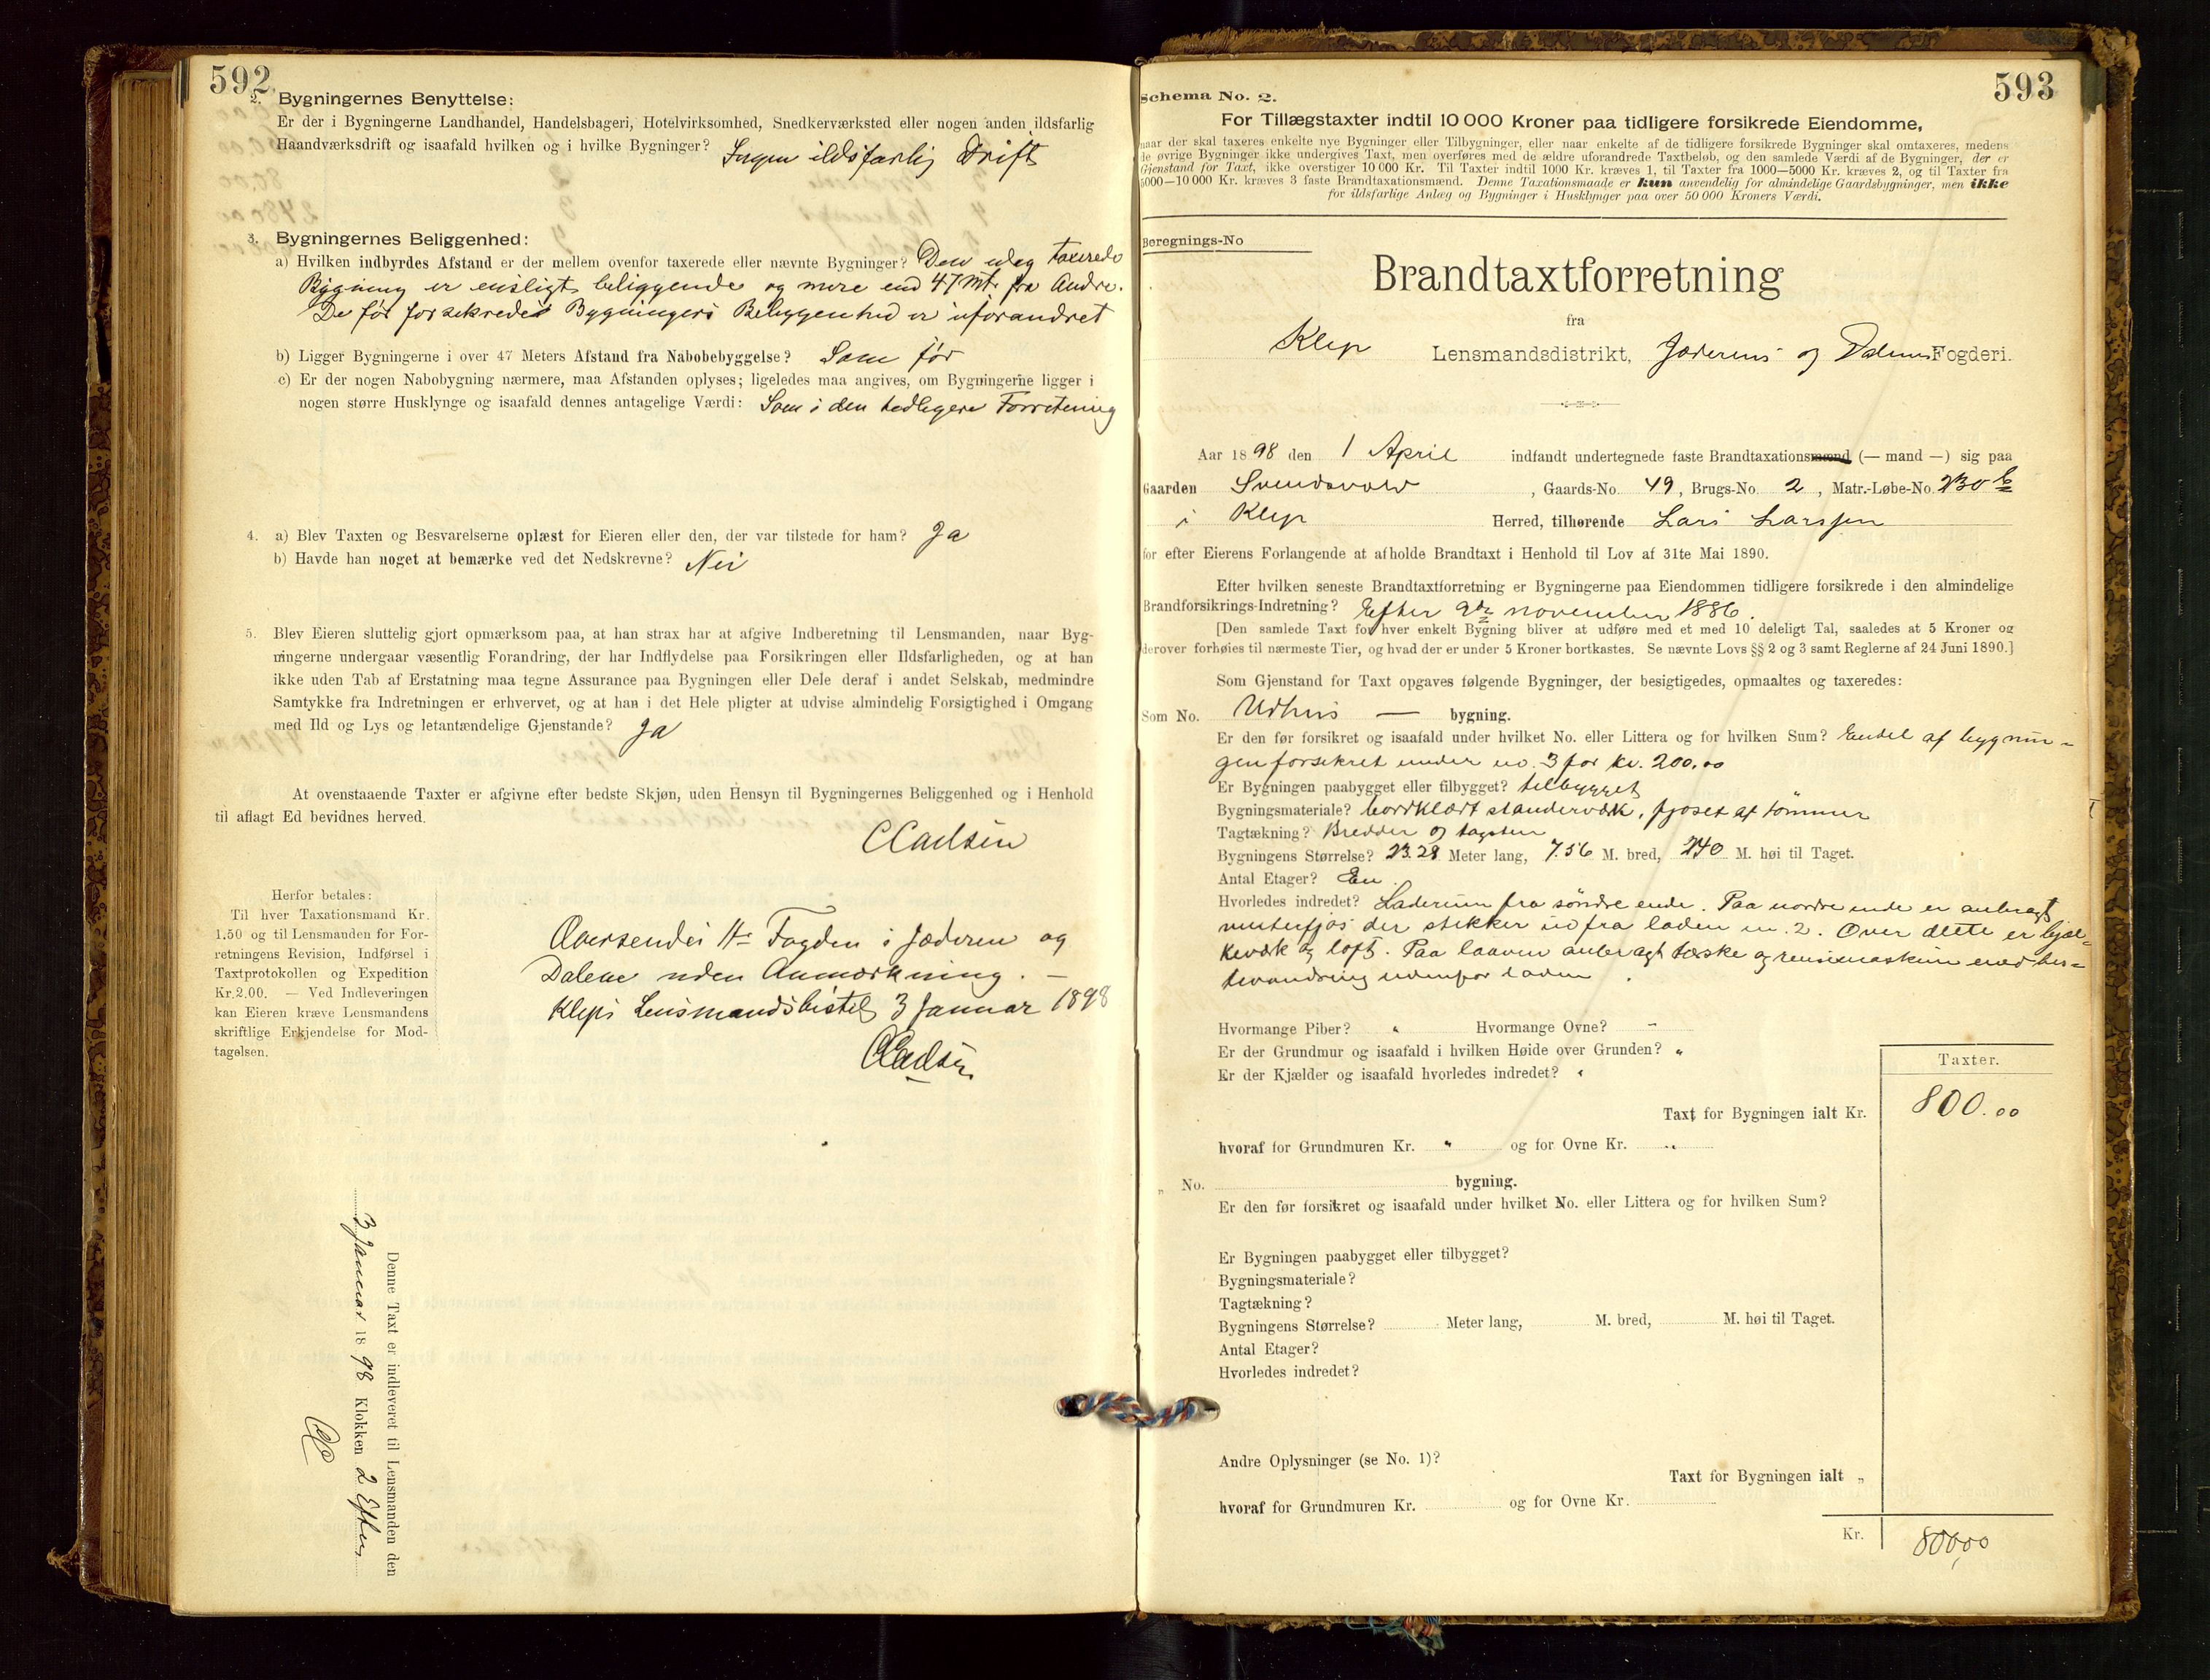 592.
2. Bygningernes Benyttelse:
Er der i Bygningerne Landhandel, Handelsbageri, Hotelvirksomhed, Snedkerværksted eller nogen anden ildsfarlig
Haandværksdrift og isaafald hvilken og i hvilke Bygninger? Ingen ildsfarlig Drift
3. Bygningernes Beliggenhed:
a) Hvilken indbyrdes Afstand er der mellem ovenfor taxerede eller nævnte Bygninger? Den idag taxerede
Bygning er ensligt beliggende og mere end 47 mt. fra Andre.
De før forsikredes Bygningers Beliggenhed er uforandret
b) Ligger Bygningerne i over 47 Meters Afstand fra Nabobebyggelse? Som før
c) Er der nogen Nabobygning nærmere, maa Afstanden oplyses; ligeledes maa angives, om Bygningerne ligger i
nogen større Husklynge og isaafald dennes antagelige Værdi: Som i den tidligere Forretning
4. a) Blev Taxten og Besvarelserne oplæst for Eieren eller den, der var tilstede for ham? Ja
b) Havde han noget at bemærke ved det Nedskrevne? Nei
5. Blev Eieren sluttelig gjort opmærksom paa, at han strax har at afgive Indberetning til Lensmanden, naar Byg-
ningerne undergaar væsentlig Forandring, der har Indflydelse paa Forsikringen eller Ildsfarligheden, og at han
ikke uden Tab af Erstatning maa tegne Assurance paa Bygningen eller Dele deraf i andet Selskab, medmindre
Samtykke fra Indretningen er erhvervet, og at han i det Hele pligter at udvise almindelig Forsigtighed i Omgang
med Ild og Lys og letantændelige Gjenstande? Ja
At ovenstaaende Taxter er afgivne efter bedste Skjøn, uden Hensyn til Bygningernes Beliggenhed og i Henhold
til aflagt Ed bevidnes herved.
Herfor betales:
Til hver Taxationsmand Kr.
1.50 og til Lensmanden for For-
retningens Revision, Indførsel i
Taxtprotokollen og Expedition
Kr. 2.00. — Ved Indleveringen
kan Eieren kræve Lensmandens
skriftlige Erkjendelse for Mod-
tagelsen.
Oversendes Hr Fogden i Jæderen og
Dalene uden Anmærkning. —
Kleps Lensmandsbestel 3 Januar 1898
Denne Taxt er indleveret til Lensmanden den
3 Januar 1898 Klokken 2 Efterm
593
Schema No. 2.
For Tillægstaxter indtil 10 000 Kroner paa tidligere forsikrede Eiendomme,
naar der skal taxeres enkelte nye Bygninger eller Tilbygninger, eller naar enkelte af de tidligere forsikrede Bygninger skal omtaxeres, medens
de øvrige Bygninger ikke undergives Taxt, men overføres med de ældre uforandrede Taxtbeløb, og den samlede Værdi af de Bygninger, der er
Gjenstand for Taxt, ikke overstiger 10 000 Kr. Til Taxter indtil 1000 Kr. kræves 1, til Taxter fra 1000—5000 Kr. kræves 2, og til Taxter fra
5000—10 000 Kr. kræves 3 faste Brandtaxationsmænd. Denne Taxationsmaade er kun anvendelig for almindelige Gaardsbygninger, men ikke
for ildsfarlige Anlæg og Bygninger i Husklynger paa over 50 000 Kroners Værdi.
Beregnings-No
Brandtaxtforretning
fra
Klep Lensmandsdistrikt, Jæderens og Dalenes Fogderi.
Aar 1898 den 1 April indfandt undertegnede faste Brandtaxationsmænd (— mand —) sig paa
Gaarden Svendsvold, Gaards-No. 49, Brugs-No. 2, Matr.-Løbe-No. 230 b
i Klep Herred, tilhørende Lars Larssen
for efter Eierens Forlangende at afholde Brandtaxt i Henhold til Lov af 31te Mai 1890.
Efter hvilken seneste Brandtaxtforretning er Bygningerne paa Eiendommen tidligere forsikrede i den almindelige
Brandforsikrings-Indretning? Efter 9de november 1886.
[Den samlede Taxt for hver enkelt Bygning bliver at udføre med et med 10 deleligt Tal, saaledes at 5 Kroner og
derover forhøies til nærmeste Tier, og hvad der er under 5 Kroner bortkastes. Se nævnte Lovs §§ 2 og 3 samt Reglerne af 24 Juni 1890.]
Som Gjenstand for Taxt opgaves følgende Bygninger, der besigtigedes, opmaaltes og taxeredes:
Som No. Udhus — bygning.
Er den før forsikret og isaafald under hvilket No. eller Littera og for hvilken Sum? Endel af bygnin-
gen forsikret under no. 3 for kr. 200,00
Er Bygningen paabygget eller tilbygget? tilbygget
Bygningsmateriale? bordklædt standerværk, fjøset af tømmer
Tagtækning? Bredder og tagsten
Bygningens Størrelse? 23.28 Meter lang, 7.56 M. bred, 240 M. høi til Taget.
Antal Etager? En
Hvorledes indredet? Laderum fra søndre ende. Paa nordre ende er anbragt
vinterfjøs der stikker ud fra laden m. 2. Over dette er bjæl-
keværk og loft. Paa laaven anbragt tærske og rensemaskin med hes-
tevandring udenfor laden.
Hvormange Piber? " Hvormange Ovne? "
Er der Grundmur og isaafald i hvilken Høide over Grunden? "
Er der Kjælder og isaafald hvorledes indredet? "
Taxter.
Taxt for Bygningen ialt Kr. 800.00
hvoraf for Grundmuren Kr. " og for Ovne Kr. "
" No. bygning.
Er den før forsikret og isaafald under hvilket No. eller Littera og for hvilken Sum?
Er Bygningen paabygget eller tilbygget?
Bygningsmateriale?
Tagtækning?
Bygningens Størrelse? Meter lang, M. bred, M. høi til Taget.
Antal Etager?
Hvorledes indredet?
Andre Oplysninger (se No. 1)?
Taxt for Bygningen ialt "
hvoraf for Grundmuren Kr. og for Ovne Kr.
Kr. 800,00